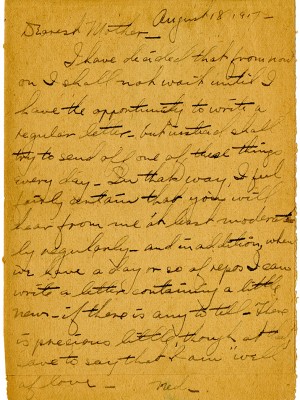 August 18, 1917 -
Dearest Mother -
I have decided that from now
on I shall not wait until I
have the opportunity to write a
regular letter - but instead shall
try to send old one of these things
every day - In that way, I feel
fairly certain that you will
hear from me at least moderate
ly regularly - and in addition, when
we have a day or so of repos I can
write a letter containing a little
news - if there is any to tell - There
is precious little, though, at
save to say that I am well
of love -